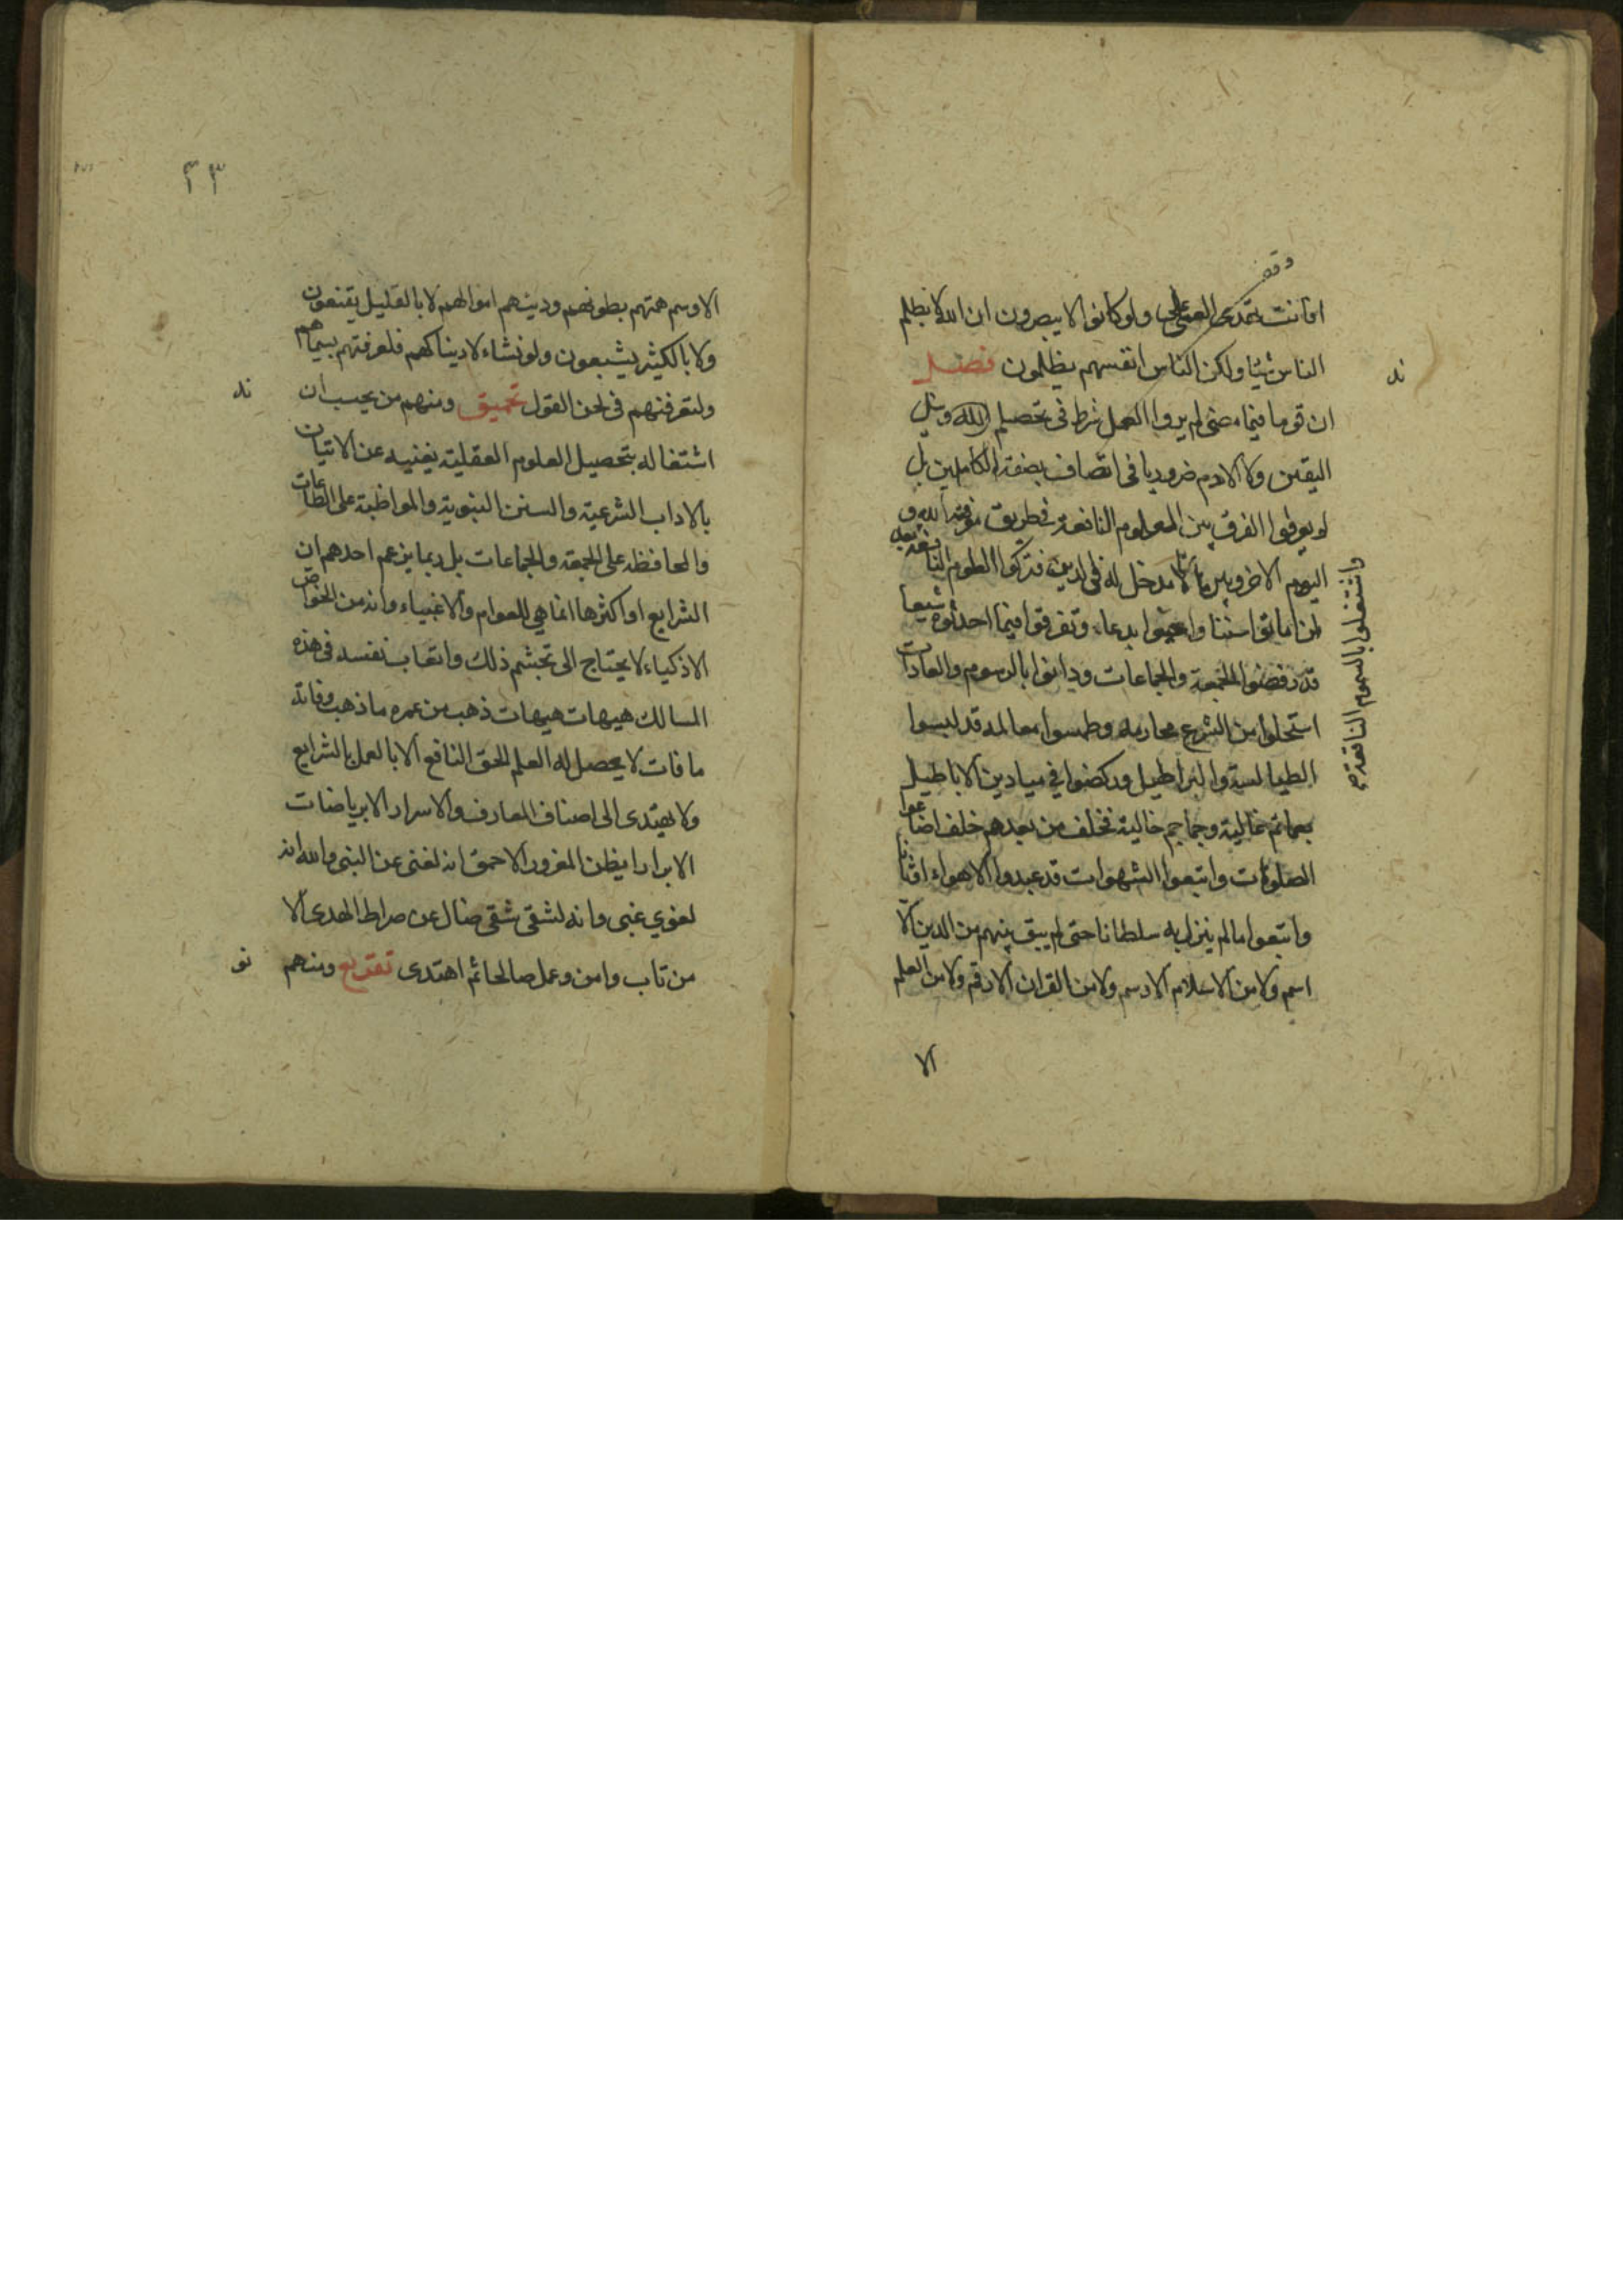 وقف
افانت تهدى العمى ولو كانوا لا يبصرون ان الله لا يظلم
الناس شيئا ولكن الناس انفسهم يظلمون فصل
ند
ان قوما فيما مضى لم يروا العمل شرطا فى تحصيل ونيل
اليقين ولا الادم ضروريا فى اتصاف بصفة الكاملين بل
لم يعرفوا الفرق بين العلوم النافعة فى طريق معرفة الله و
اليوم الاخر وبين ما لا مدخل له فى الدين فتركوا العلوم النافعة
واشتغلوا بالسموم الناقعة صح
اماتوا سننا واحيوا بدعا، وتفرقوا فيما احدثوه شيعا
قد رفضوا الجمعة والجماعات ودانوا بالرسوم والعادات
استحلوا من الشرع محارمه وطمسوا معالمه قد لبسوا
الطيالسة والبراطيل وركضوا فى ميادين الاباطيل
بعمائم عالية وجماجم خالية فخلف من بعدهم خلف اضاعوا
الصلوات واتبعوا الشهوات قد عبدوا الاهواء اوثانا
واتبعوا ما لم ينزل به سلطانا حتى لم يبق بينهم من الدين الا
اسم ولا من الاسلام الا رسم ولا من القران الا رقم ولا من العلم
الا
٣٣
الا وسم همتهم بطونهم ودينهم اموالهم لا بالقليل يقنعون
ولا بالكثير يشبعون ولو نشاء لاريناكهم فلعرفتهم بسيماهم
ولتعرفنهم فى لحن القول تحميق ومنهم من يحسب ان
نه
اشتغاله بتحصيل العلوم العقلية يغنيه عن الاتيان
بالاداب الشرعية والسنن النبوية والمواظبة على الطاعات
والمحافظة على الجمعة والجماعات بل ربما يزعم احدهم ان
الشرايع او اكثرها انما هي للعوام والاغبياء وانه من الخواص
الاذكياء لا يحتاج الى تجشم ذلك واتعاب نفسه فى هذه
المسالك هيهات هيهات ذهب من عمره ما ذهب وفاته
ما فات لا يحصل له العلم الحق النافع الا بالعمل بالشرايع
ولا يهتدى الى اصناف المعارف والاسرار الا برياضات
الابرار ايظن المغرور الاحمق انه لغنى عن النبى والله انه
لغوي غبى وانه لشقى شقى ضال عن صراط الهدى الا
من تاب وامن وعمل صالحا ثم اهتدى تقريع ومنهم
نو